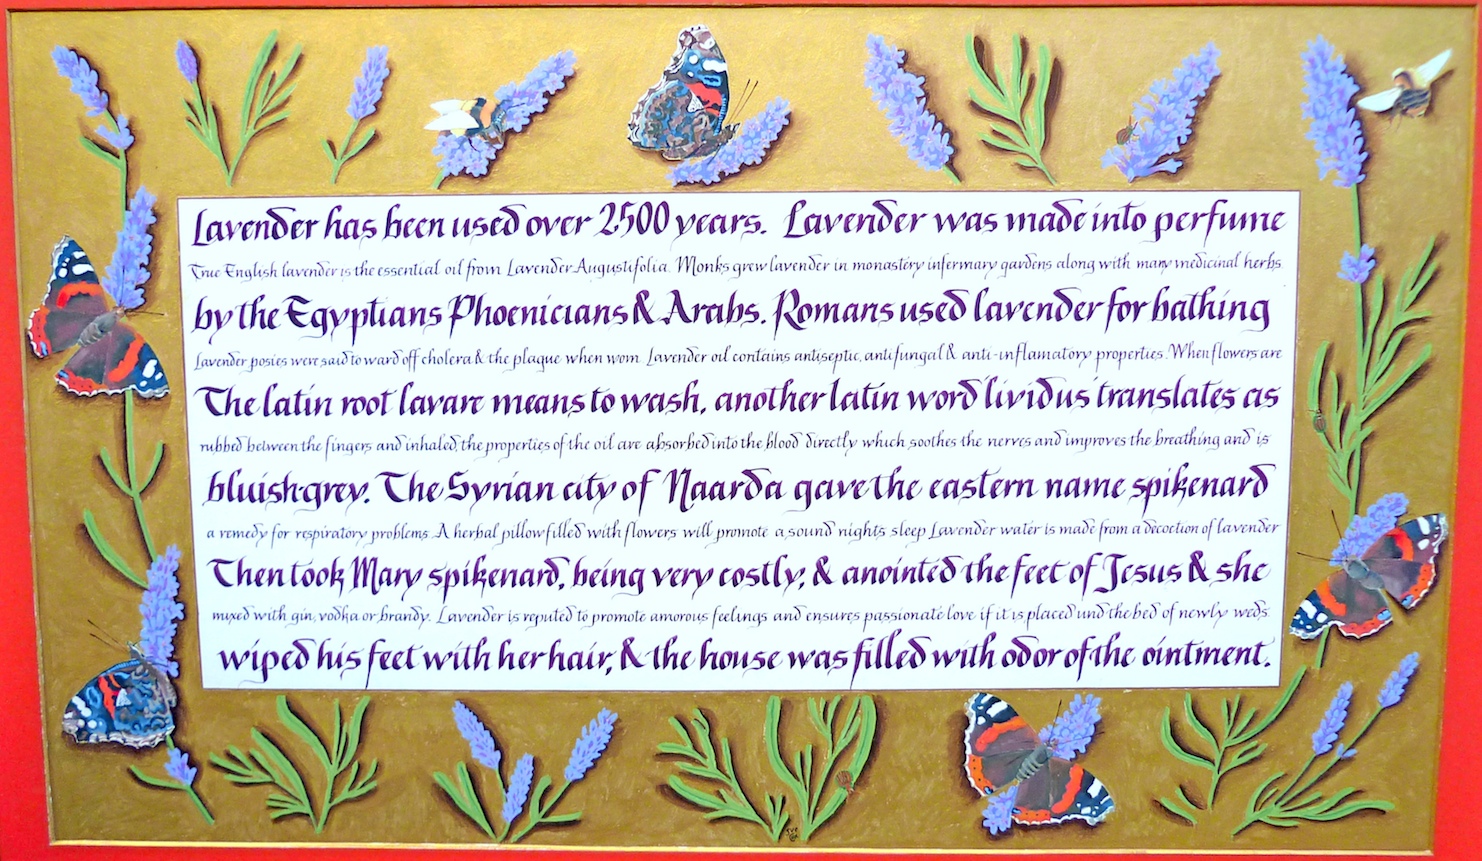 Lavender has been used over 2500 years. Lavender was made into perfume
True English lavender is the essential oil from Lavender Augustifolia. Monks grew lavender in monastery infermary gardens along with many medicinal herbs.
by the Egyptians Phoenicians & Arabs. Romans used lavender for bathing
Lavender posies were said to ward off cholera & the plague when worn. Lavender oil contains antiseptic, antifungal & anti-inflamatory properties. When flowers are
The latin root lavare means to wash, another latin word lividus translates as
rubbed between the fingers and inhaled, the properties of the oil are absorbed into the blood directly which soothes the nerves and improves the breathing and is
bluish-grey. The Syrian city of Naarda gave the eastern name spikenard
a remedy for respiratory problems. A herbal pillow filled with flowers will promote a sound nights sleep Lavender water is made from a decoction of lavender
Then took Mary spikenard, being very costly, & anointed the feet of Jesus & she
mixed with gin, vodka or brandy. Lavender is reputed to promote amorous feelings and ensures passionate love if it is placed und the bed of newly weds.
wiped his feet with her hair, & the house was filled with odor of the ointment.